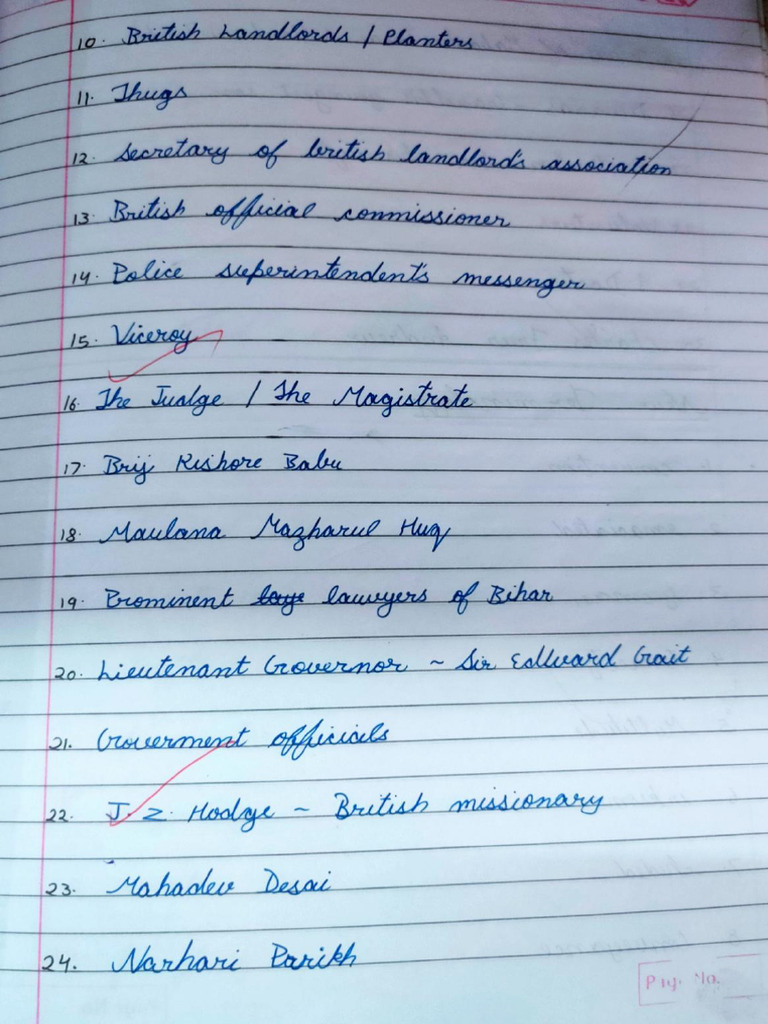 10. British Landlords / Planters
11. Thugs
12. Secretary of british landlord's association
13. British official commissioner
14. Police superintendent's messenger
15. Viceroy
16. The Judge / The Magistrate
17. Brij Kishore Babu
18. Maulana Mazharul Huq
19. Prominent lawyers of Bihar
20. Lieutenant Governor ~ Sir Edward Gait
21. Goverment officials
22. J. Z. Hodge ~ British missionary
23. Mahadev Desai
24. Narhari Parikh